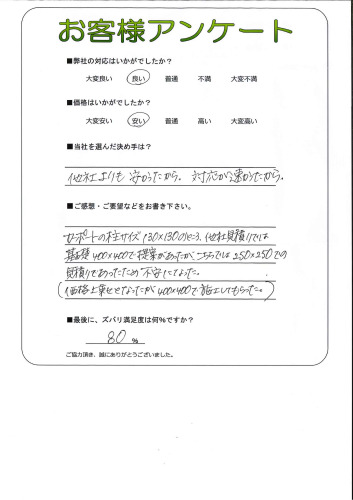 お客様アンケート
■弊社の対応はいかがでしたか？
大変良い 良い 普通 不満 大変不満
■価格はいかがでしたか？
大変安い 安い 普通 高い 大変高い
■当社を選んだ決め手は？
他社よりも 安かったから。 対応が速かったから。
■ご感想・ご要望などをお書き下さい。
カーポートの柱サイズ 130×130のところ、他社見積りでは
基礎 400×400で提案があったが こちらでは 250×250での
見積りであったため 不安になった。
（価格上乗せとなったが 400×400で施工してもらった。）
■最後に、ズバリ満足度は何％ですか？
80 %
ご協力頂き、誠にありがとうございました。